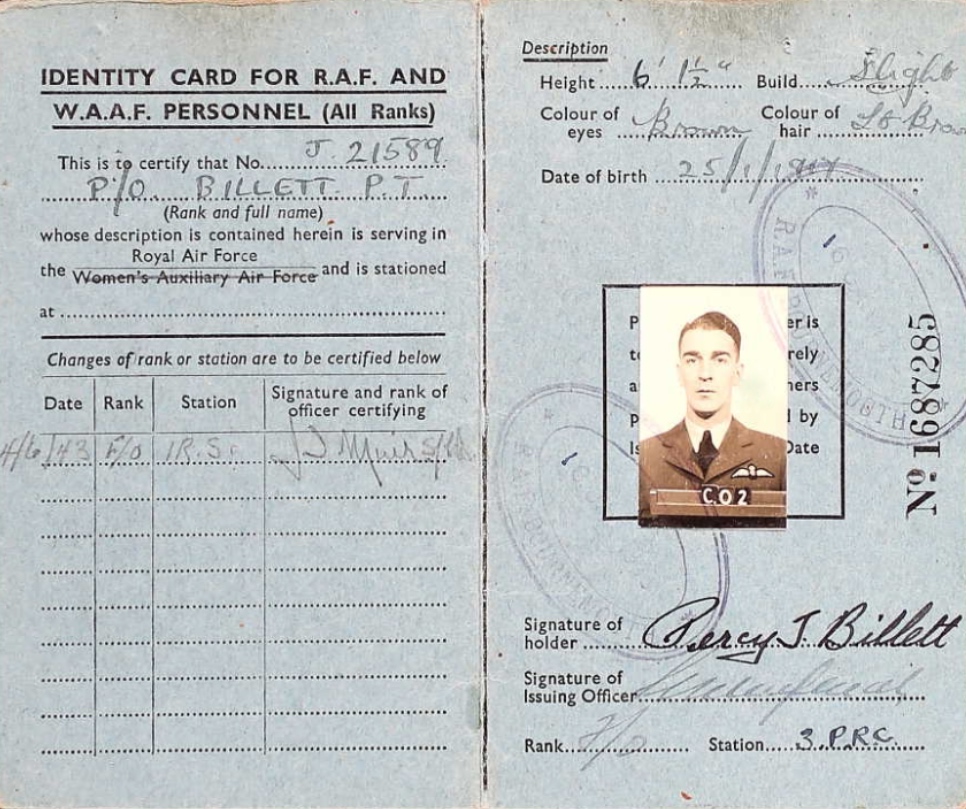 IDENTITY CARD FOR R.A.F. AND
W.A.A.F. PERSONNEL (All Ranks)
This is to certify that No. J 21589
P/O. BILLETT. P.T.
(Rank and full name)
whose description is contained herein is serving in
Royal Air Force
the Women's Auxiliary Air Force and is stationed
at
Changes of rank or station are to be certified below
Date Rank Station Signature and rank of officer certifying
4/6/43 F/O 1R.S.
Description
Height 6' 1½" Build Slight
Colour of eyes Brown Colour of hair Lt Brow
Date of birth 25/1/19
P er is
to rely
a ners
p d by
Is Date
C.O 2
Nº 1687285
Signature of holder Percy T. Billett
Signature of Issuing Officer
Rank F/O Station 3.P.R.C.